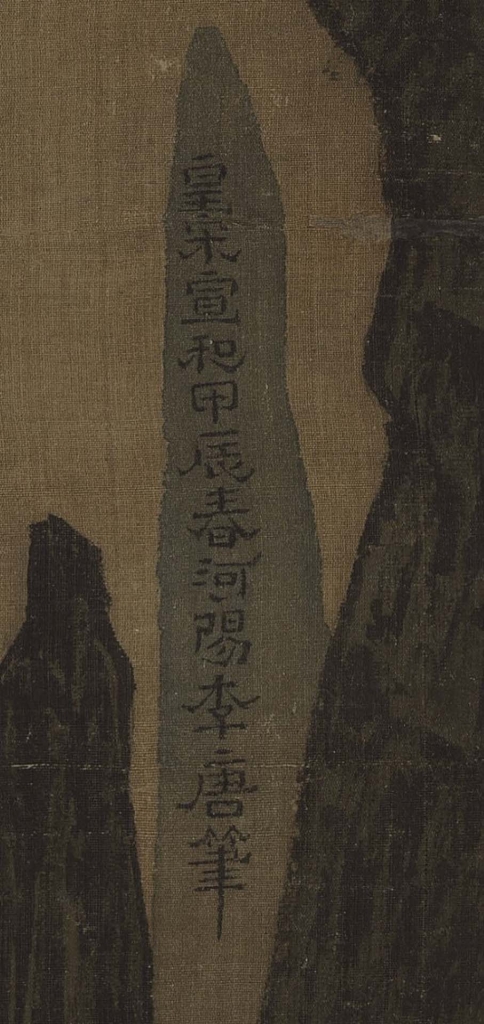 皇宋宣和甲辰春河陽李唐筆